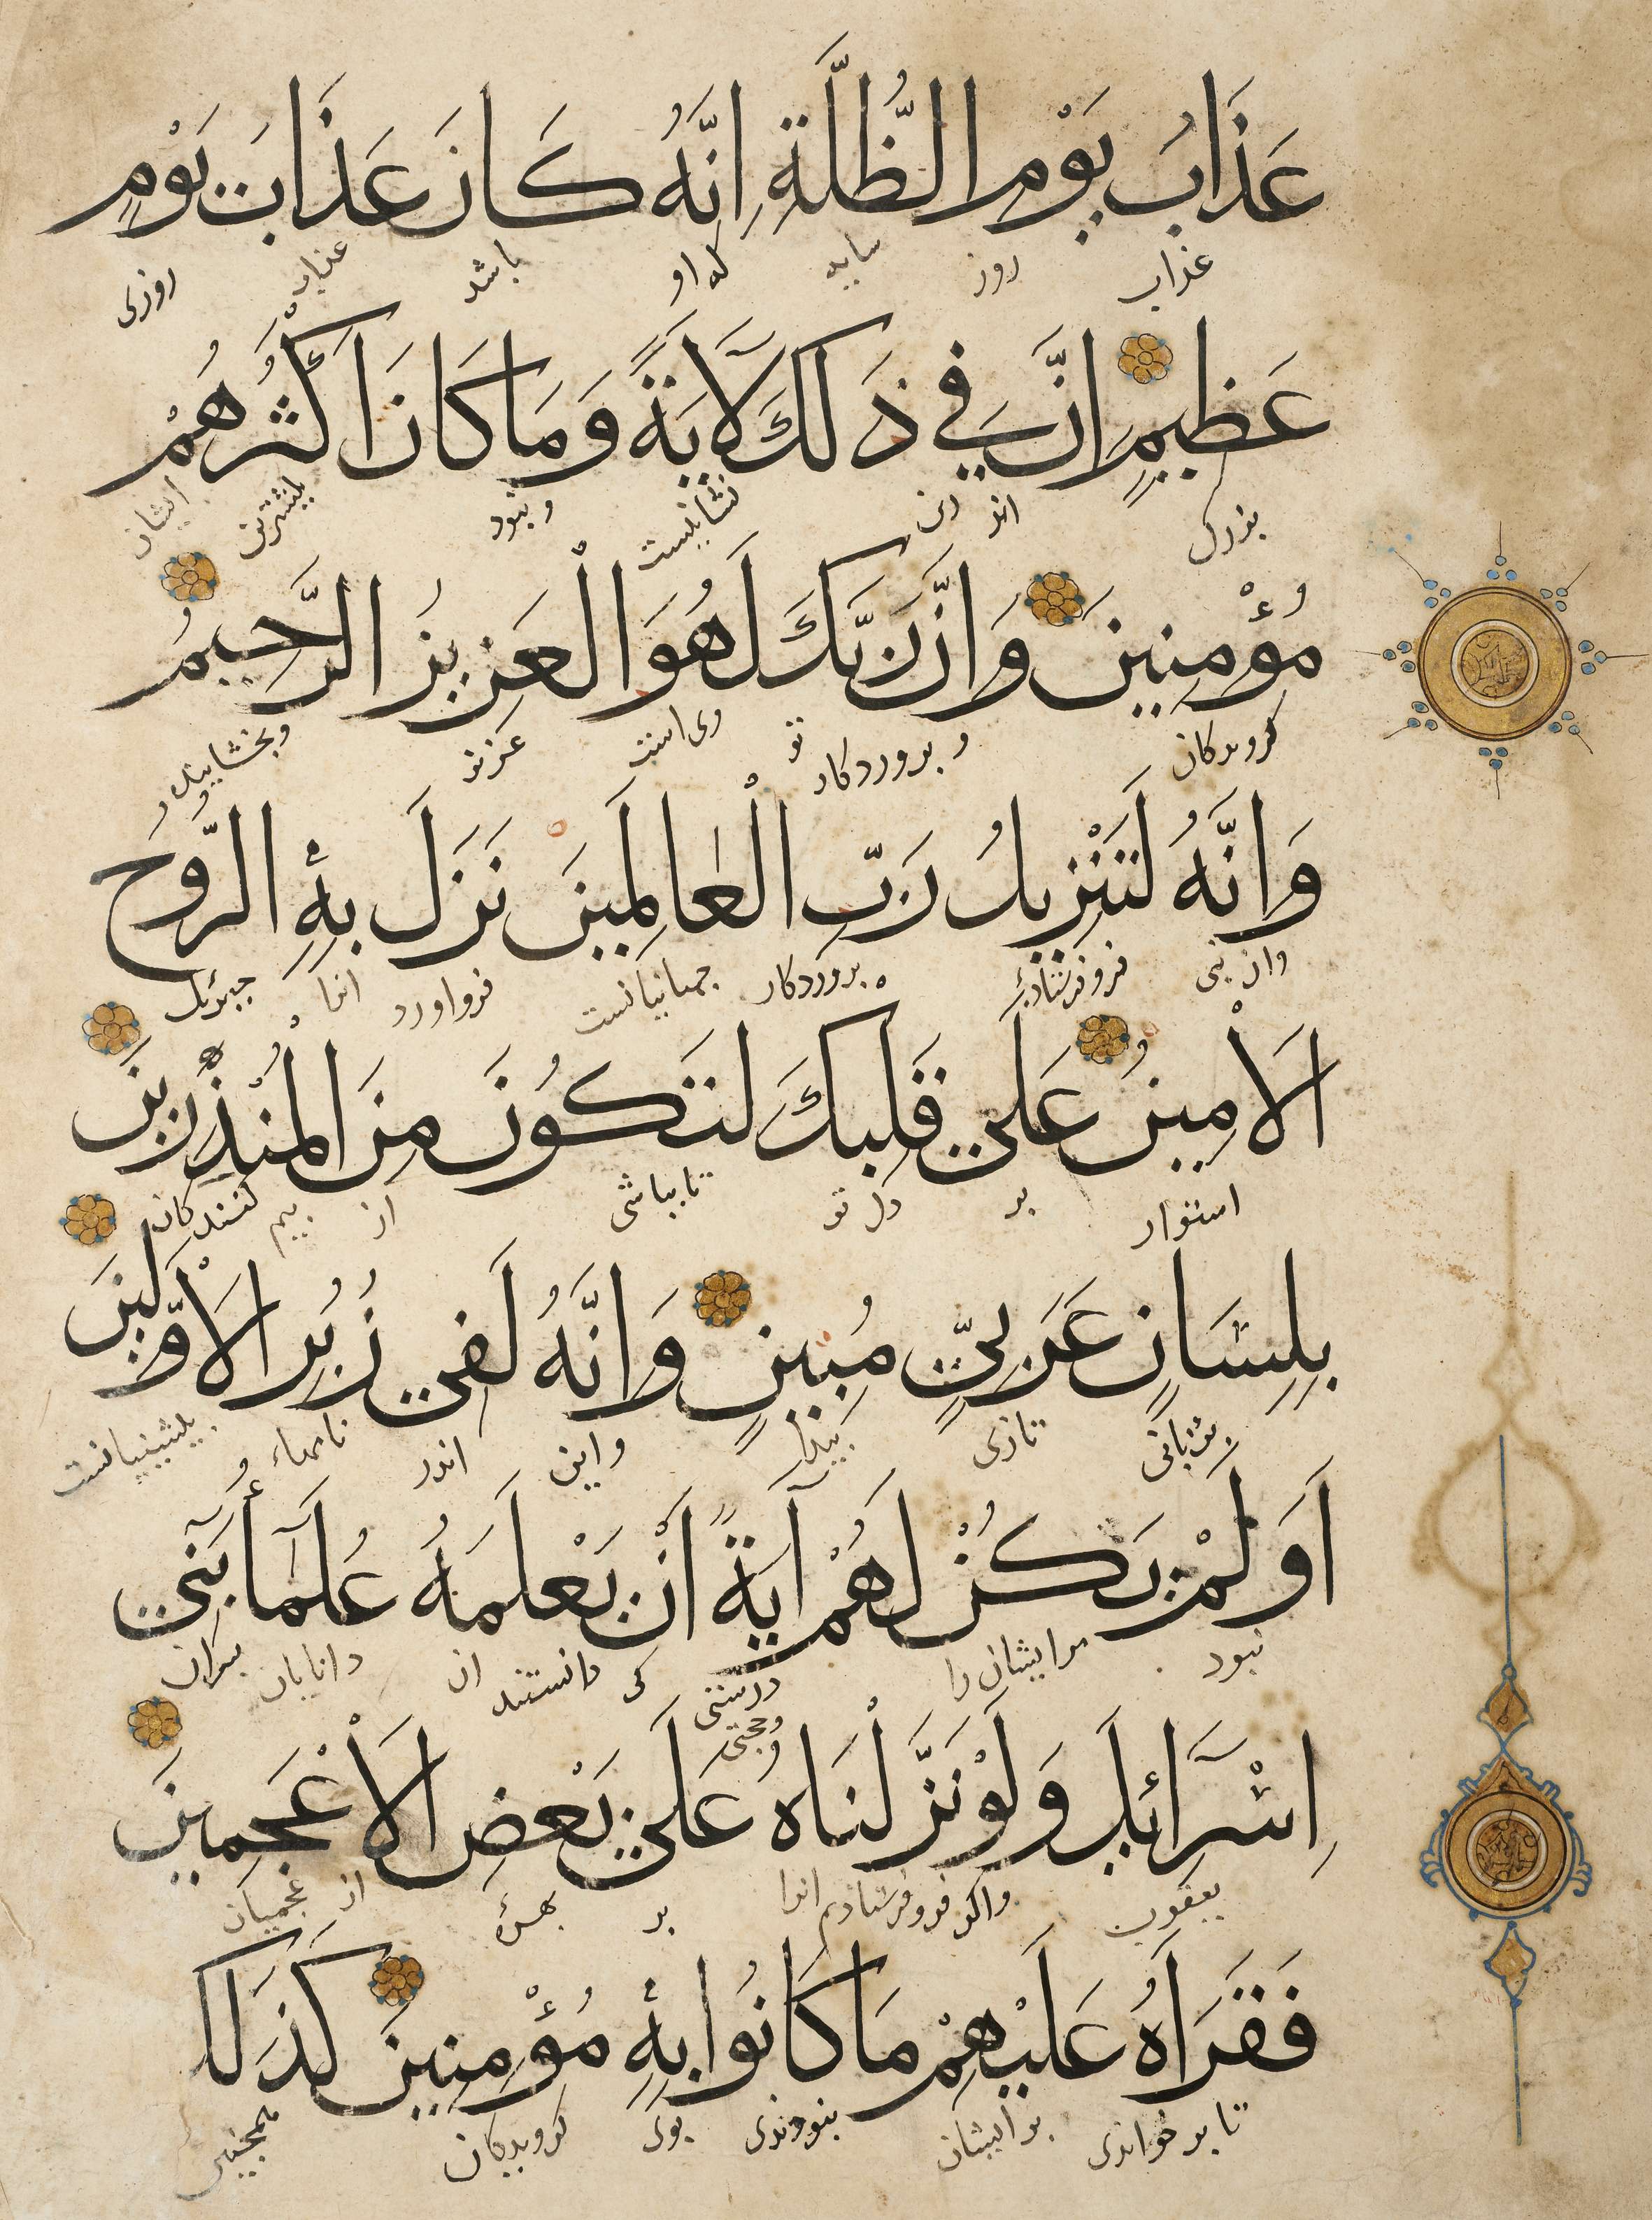 عَذَابُ يَوْمِ الظُّلَّةِ اِنَّهُ كَانَ عَذَابَ يَوْمٍ
عذاب روز سایه که او باشد عذاب روزی
عَظِيمٍ اِنَّ فِي ذَلِكَ لَآيَةً وَمَا كَانَ اَكْثَرُهُمْ
بزرک اندر ان نشانیست و نبود بیشترین ایشان
مُؤْمِنِينَ وَاِنَّ رَبَّكَ لَهُوَ الْعَزِيزُ الرَّحِيمُ
کرویدکان و بروردکار تو وی است عزیز و بخشاینده
وَاِنَّهُ لَتَنْزِيلُ رَبِّ الْعَالَمِينَ نَزَلَ بِهِ الرُّوحُ
فروفرستاده بروردکار جهانیانست فرواورد انرا جبرئیل
الْاَمِينُ عَلَى قَلْبِكَ لِتَكُونَ مِنَ الْمُنْذِرِينَ
استوار بر دل تو تا بباشی از بیم کنندکان
بِلِسَانٍ عَرَبِيٍّ مُبِينٍ وَاِنَّهُ لَفِي زُبُرِ الْاَوَّلِينَ
بزبانی تازی بیدا و این اندر نامهاء بیشینیانست
اَوَلَمْ يَكُنْ لَهُمْ آيَةً اَنْ يَعْلَمَهُ عُلَمَآءُ بَنِي
نبود مر ایشان را درستی و حجتی کی دانستند ان دانایان بسران
اِسْرَآئِلَ وَلَوْ نَزَّلْنَاهُ عَلَى بَعْضِ الْاَعْجَمِينَ
یعقوب و اکر فروفرستادیم انرا بر بهرهٔ از عجمیان
فَقَرَاَهُ عَلَيْهِمْ مَا كَانُوا بِهِ مُؤْمِنِينَ كَذَلِكَ
تا بر خواندی بر ایشان نبودندی بوی کرویدکان همجنین